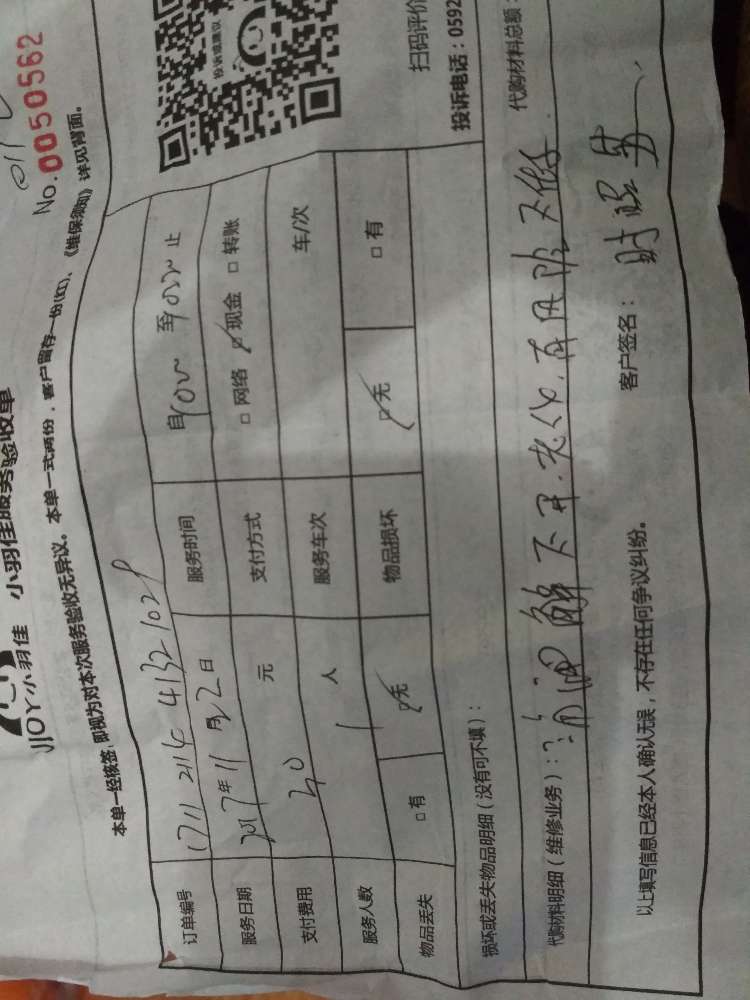 JJOY小羽佳 小羽佳服务验收单
No.0050562
本单一经核签,即视为对本次服务验收无异议。本单一式两份，客户留存一份(红)、《维保须知》详见背面。
订单编号 服务时间 自 至 止
服务日期 2017年11月22日 支付方式 □ 网络 ☑ 现金 □ 转账
支付费用 40 元 服务车次 车/次
服务人数 1 人 物品损坏 ☑无 □ 有
物品丢失 □ 有 ☑无
投诉或建议
扫码评价
投诉电话：0592
损坏或丢失物品明细（没有可不填）：
代购材料明细（维修业务）： 解不开
代购材料总额：
以上填写信息已经本人确认无误，不存在任何争议纠纷。
客户签名：